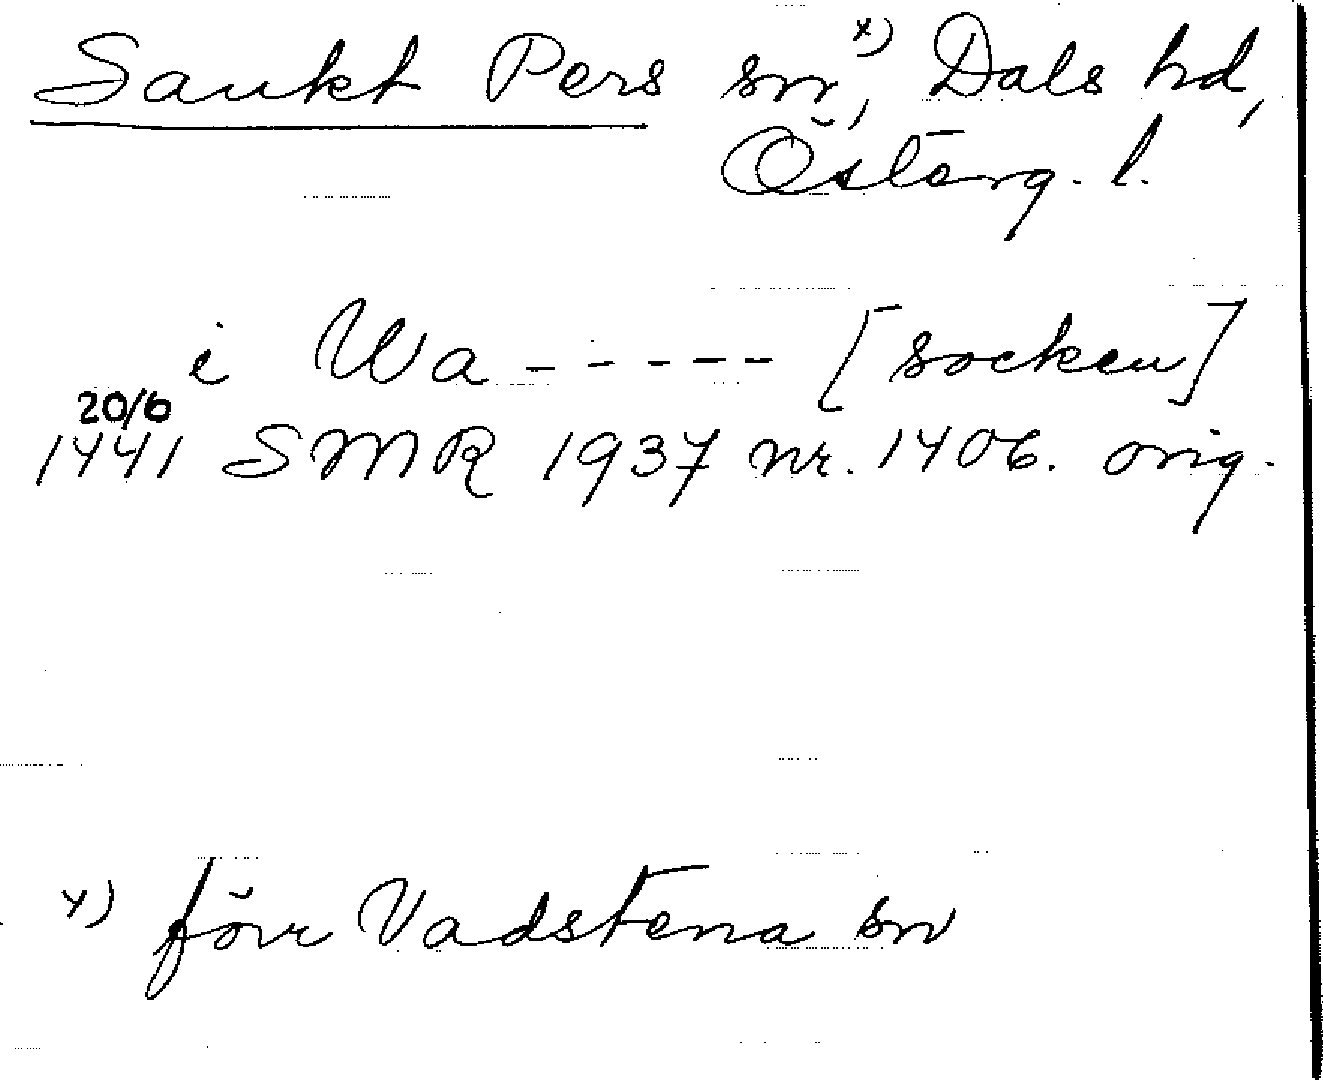 Sankt Pers sn x), Dals hd,
Österg. l.
i Wa - - - - - [socken]
20/6
1441 SMR 1937 nr. 1406. orig.
x) förr Vadstena sn